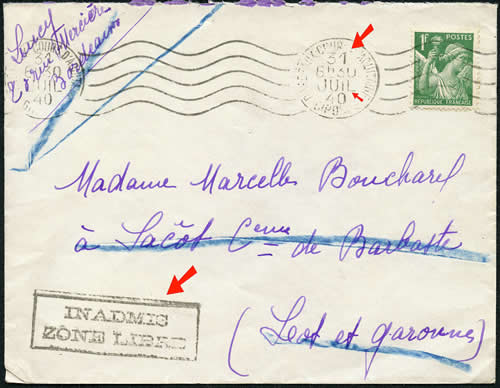 Rue Mercière
Bordeaux
31
6H30
JUIL
40
31
6H30
JUIL
40
1F POSTES
REPUBLIQUE FRANÇAISE
Madame Marcelle Boucharel
à Lacôt Cᵉⁿᵉ de Barbaste
(Leot et garonne)
INADMIS
ZÔNE LIBRE